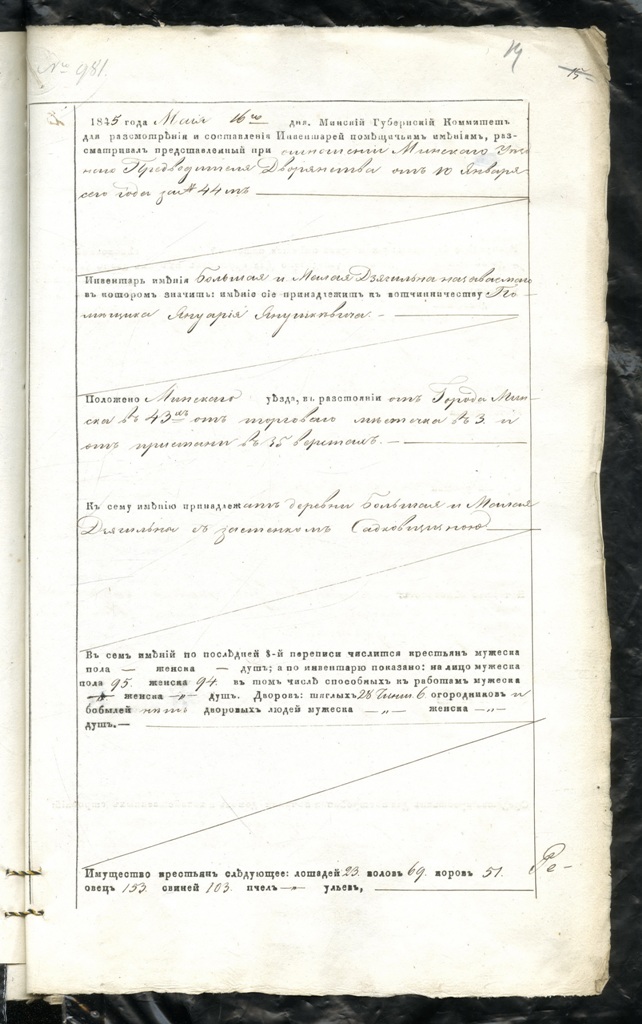 № 981.
19
15
1845 года Мая 16го дня. Минскій Губернскій Коммитетъ
для разсмотрѣнія и составленія Инвентарей помѣщичьим имѣніямъ, раз-
сматривалъ представленный при отношеніи Минскаго Уѣзд
наго Предводителя Дворянства отъ 10 Января
сего года за № 44мъ
Инвентарь имѣнія Большая и Малая Дягильна называемаго
въ которомъ значитъ: имѣніе сіе принадлежитъ къ вотчинничеству По-
мѣщика Януарія Янушкевича. -
Положено Минскаго уѣзда, въ разстояніи отъ Города Мин-
ска въ 43хъ отъ торговаго мѣстечка въ 3. и
отъ пристани въ 35 верстахъ. -
Къ сему имѣнію принадлежатъ деревни Большая и Малая
Дягильна съ застенкомъ Садковщиною
Въ семъ имѣніи по послѣдней 8-й переписи числится крестьянъ мужеска
пола — женска — душъ; а по инвентарю показано: на лицо мужеска
пола 95. женска 94. въ томъ числѣ способныхъ къ работамъ мужеска
„ женска -„- душъ. Дворовъ: тяглыхъ 28 6. огородниковъ и
бобылей нѣтъ дворовыхъ людей мужеска -„- женска -„-
душъ.—
Имущество крестьянъ слѣдующее: лошадей 23. воловъ 69. коровъ 51.
овецъ 153. свиней 103. пчелъ — ульевъ,
Ре-